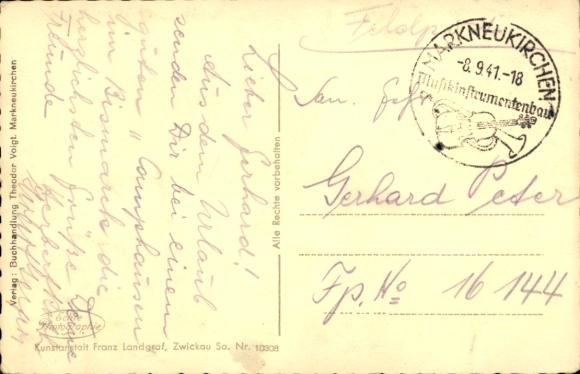 Feldpost
MARKNEUKIRCHEN
-8.9.41.-18
Musikinstrumentenbau
San. Gefr.
Gerhard Peter
Fp. No 16 144
Lieber Gerhard!
Aus dem Urlaub
senden Dir bei einem
guten " Camphausen
im Bismarck die
herzlichsten Grüße Deine
Freunde
Herbert
Alle Rechte vorbehalten
Verlag: Buchhandlung Theodor Voigt, Markneukirchen
Echte
Photographie
Kunstanstalt Franz Landgraf, Zwickau Sa. Nr. 10308